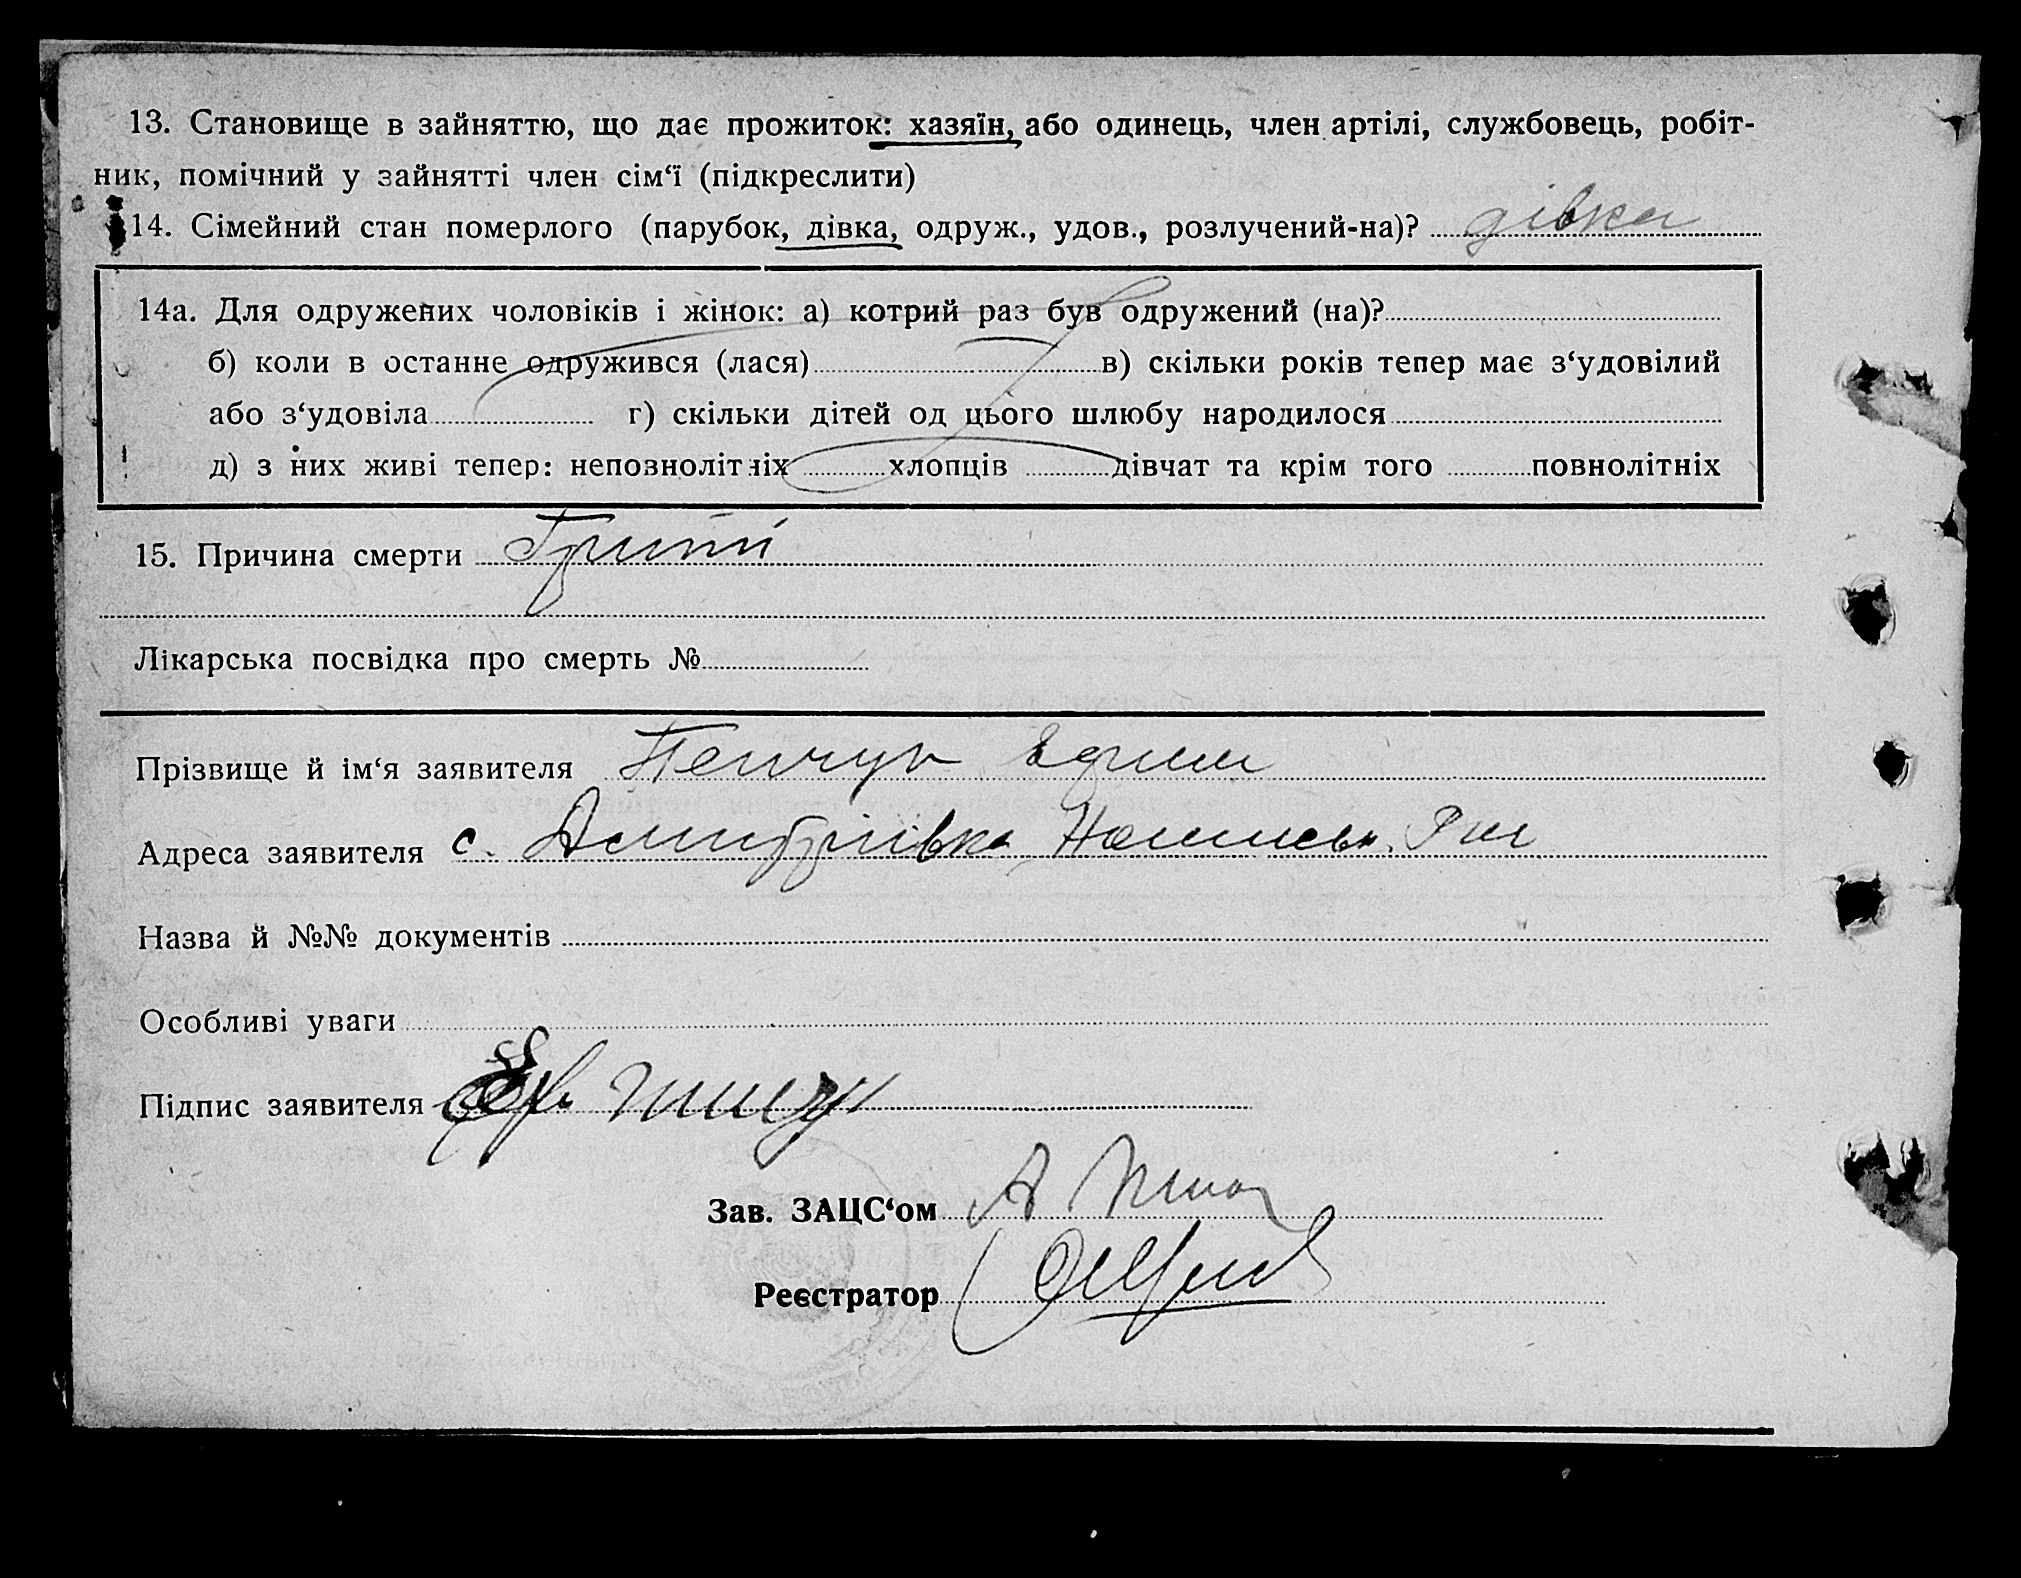 13. Становище в зайняттю, що дає прожиток: хазяїн, або одинець, член артілі, службовець, робіт-
ник, помічний у зайнятті член сім‘ї (підкреслити)
14. Сімейний стан померлого (парубок, дівка, одруж., удов., розлучений-на)? дівка
14а. Для одружених чоловіків і жінок: а) котрий раз був одружений (на)?
б) коли в останне одружився (лася) в) скільки років тепер має з‘удовілий
або з‘удовіла г) скільки дітей од цього шлюбу народилося
д) з них живі тепер: неповнолітніх хлопців дівчат та крім того повнолітніх
15. Причина смерти Грипп
Лікарська посвідка про смерть №
Прізвище й ім‘я заявителя
Адреса заявителя с. Дмитріївка
Назва й №№ документів
Особливі уваги
Підпис заявителя
Зав. ЗАЦС‘ом А
Реєстратор